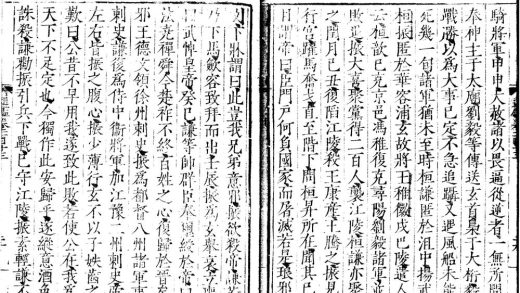 騎將軍甲申大赦諸以畏逼從逆者一無所問
奉神主于太廟劉毅等傳送玄首梟于大桁毅
戰勝以為大事已定不急追躡又遇風船未能
死幾一旬諸軍猶未至時桓謙匿於沮中揚武
桓振匿於華容浦玄故將王稚徽戍巴陵遣人
云桓歆已克京邑馮稚復克尋陽劉毅諸軍並
敗退振大喜聚黨得二百人襲江陵桓謙亦聚
之閏月己丑復陷江陵殺王康產王騰之振見
行宮躍馬奮戈直至階下問桓昇所在聞其已
目謂帝曰臣門戶何負國家而屠滅若是琅邪
下牀謂曰此豈我兄弟意邪振欲殺帝謙苦
乃下馬斂容致拜而出壬辰振為玄舉哀立喪
曰武悼皇帝癸巳謙等帥群臣奉璽綬於帝曰
法堯禪舜今楚祚不終百姓之心復歸於晉矣
邪王德文領徐州刺史振為都督八州諸軍事
刺史謙復為侍中衛將軍加江豫二州刺史帝
左右皆振之腹心振少薄行玄不以子姪齒之
歎曰公昔不早用我遂致此敗若使公在我為
天下不足定也今獨作此安歸乎遂縱意酒色
誅殺謙勸振引兵下戰己守江陵振素輕謙不